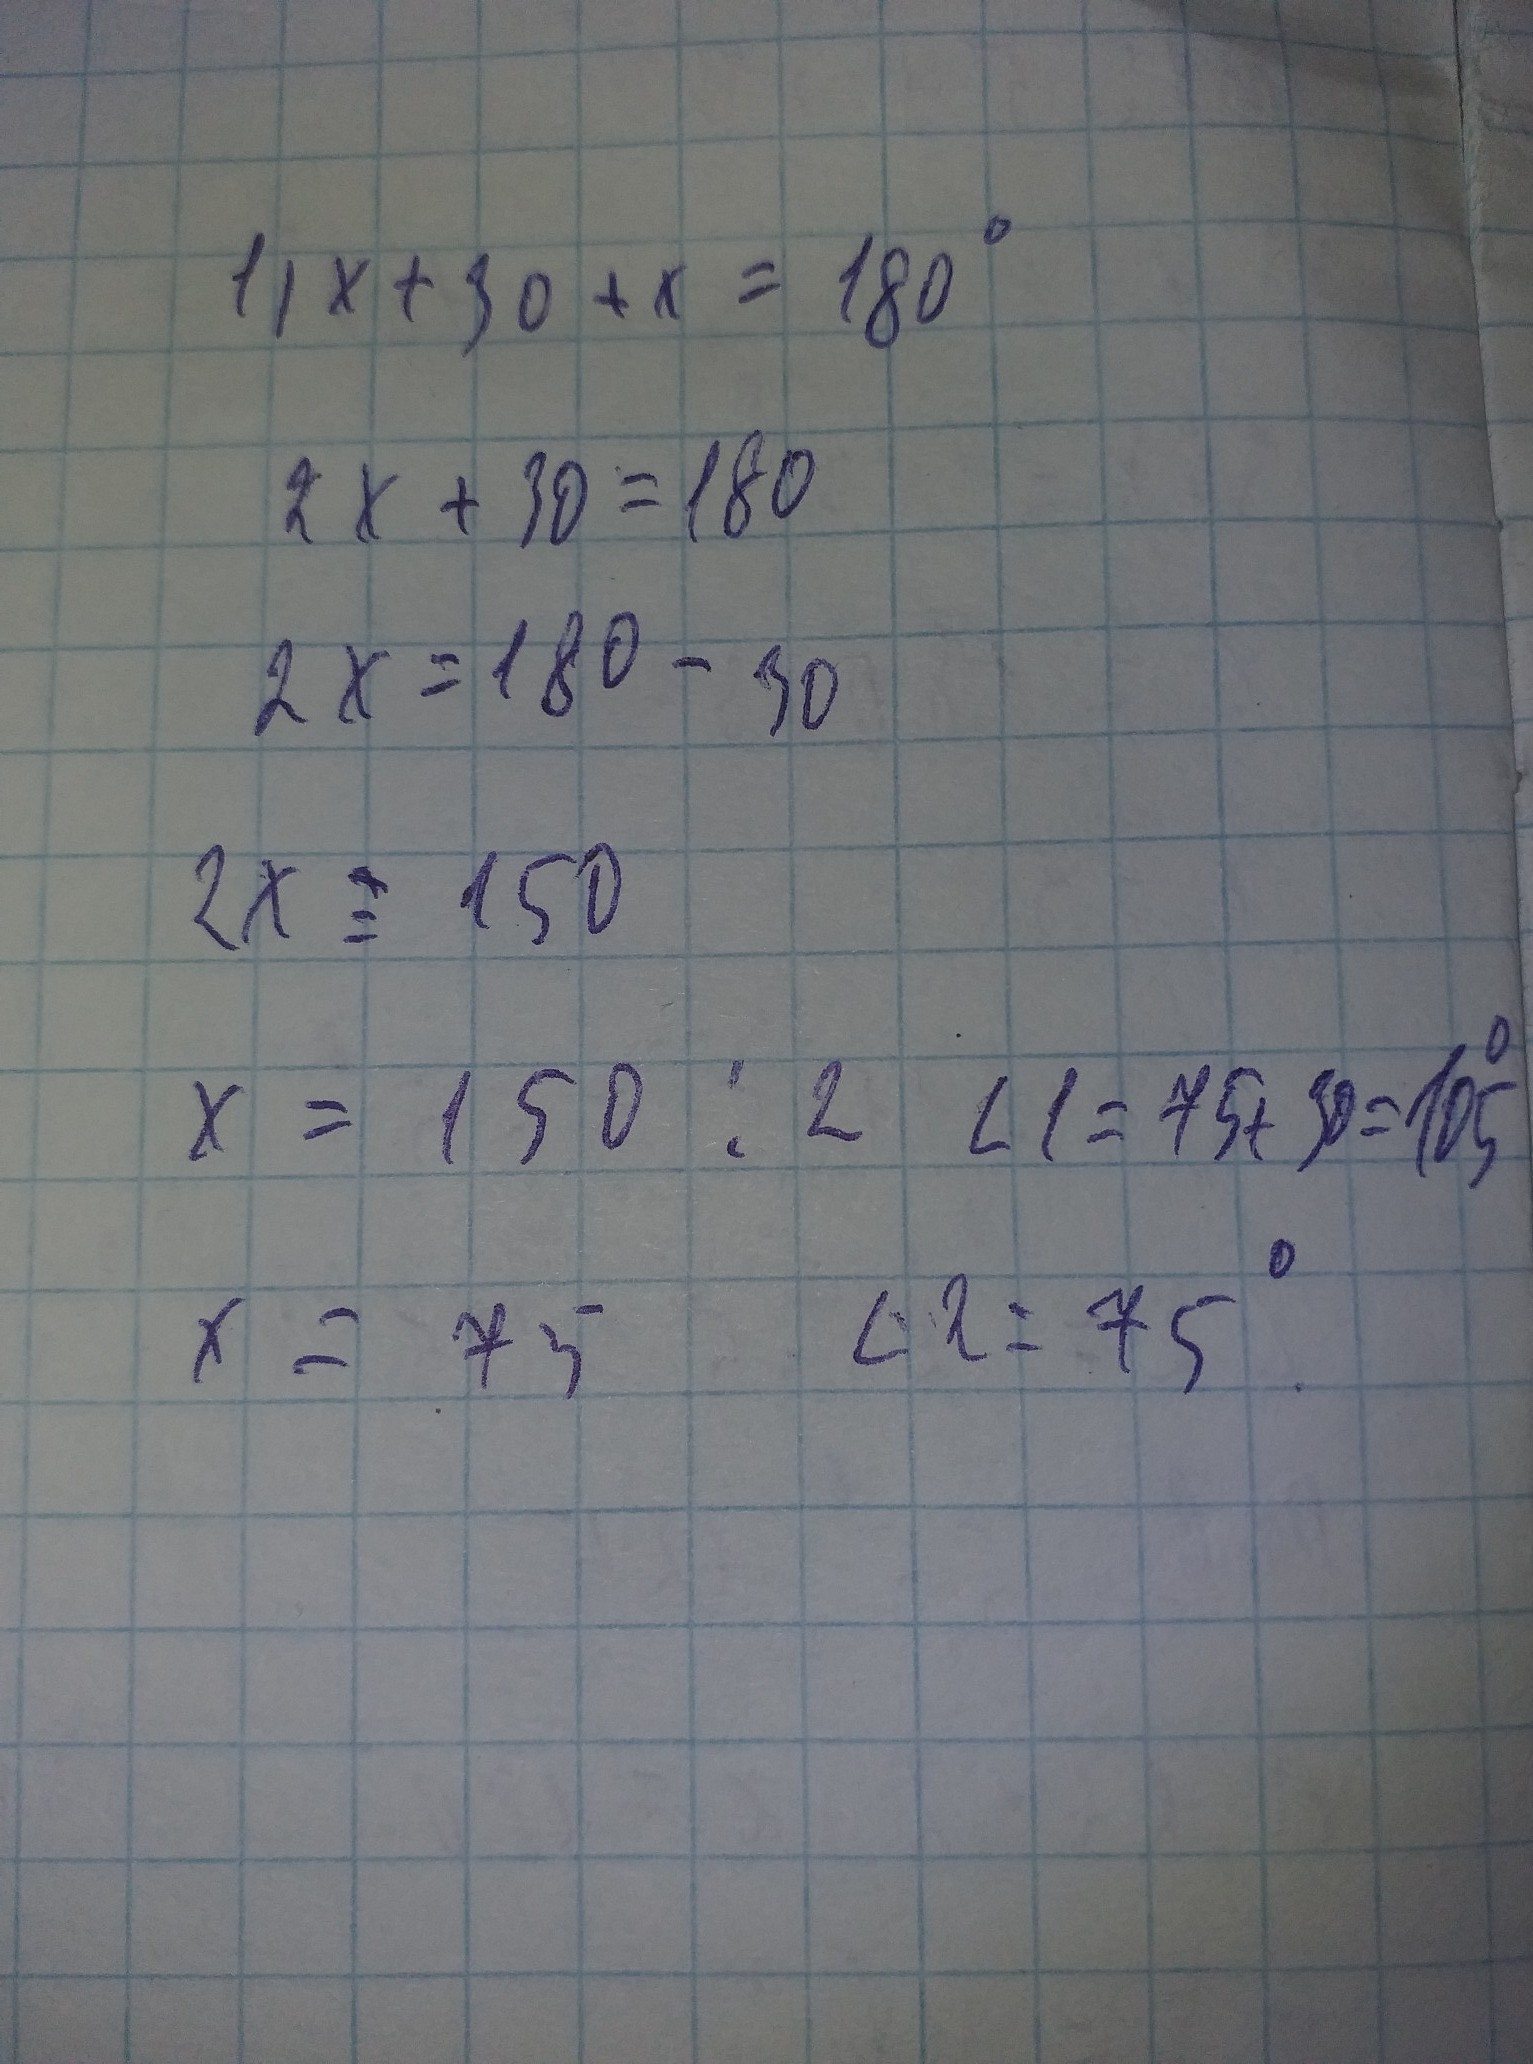 1, x + 30 + x = 180°
2x + 30 = 180
2x = 180 - 30
2x = 150
x = 150 : 2 ∠1 = 75 + 30 = 105°
x = 75 ∠2 = 75°